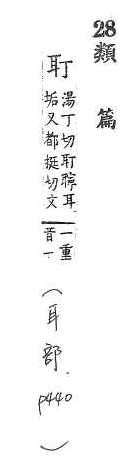 28類 篇
耵 湯丁切耵聹耳
垢又都挺切文
一重
音一
(耳部.p440)